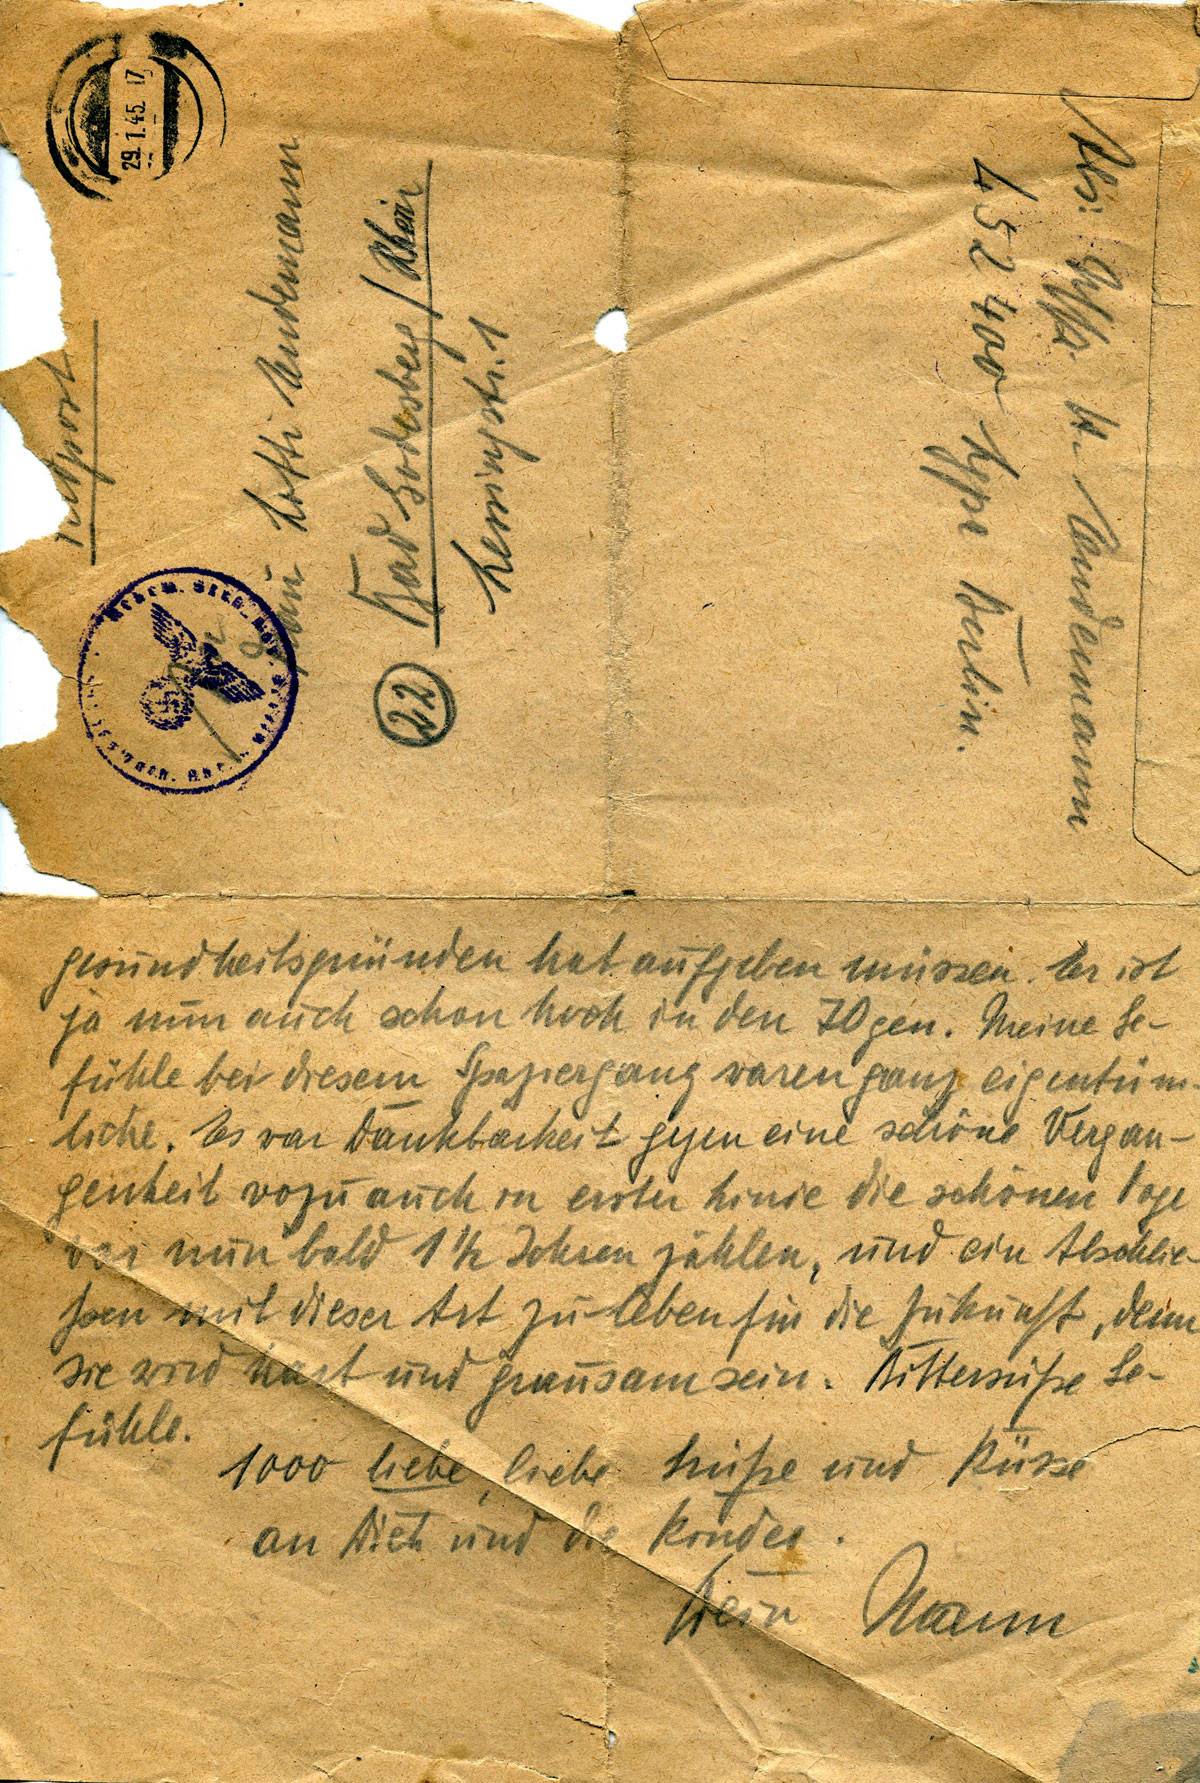 29.1.45. 17
Feldpost
Frau Lotti Andemann
(22) Bad Godesberg/Rhein
Lessingstr. 1
Abs: Uffz. H. Andemann
45240 Lgpa Berlin.
gesundheitsgründen hat aufgeben müssen. Er ist
ja nun auch schon hoch in den 70gen. Meine Ge-
fühle bei diesem Spaziergang waren ganz eigentüm-
liche. Es war Dankbarkeit gegen eine schöne Vergan-
genheit wozu auch in erster Linie die schönen Tage
vor nun bald 1 1/2 Jahren zählen, und ein Abschlie-
ßen mit dieser Art zu leben für die Zukunft, denn
sie wird hart und grausam sein. Bittersüße Ge-
fühle.
1000 liebe, liebe Grüße und Küsse
an Dich und die Kinder.
Dein Mann